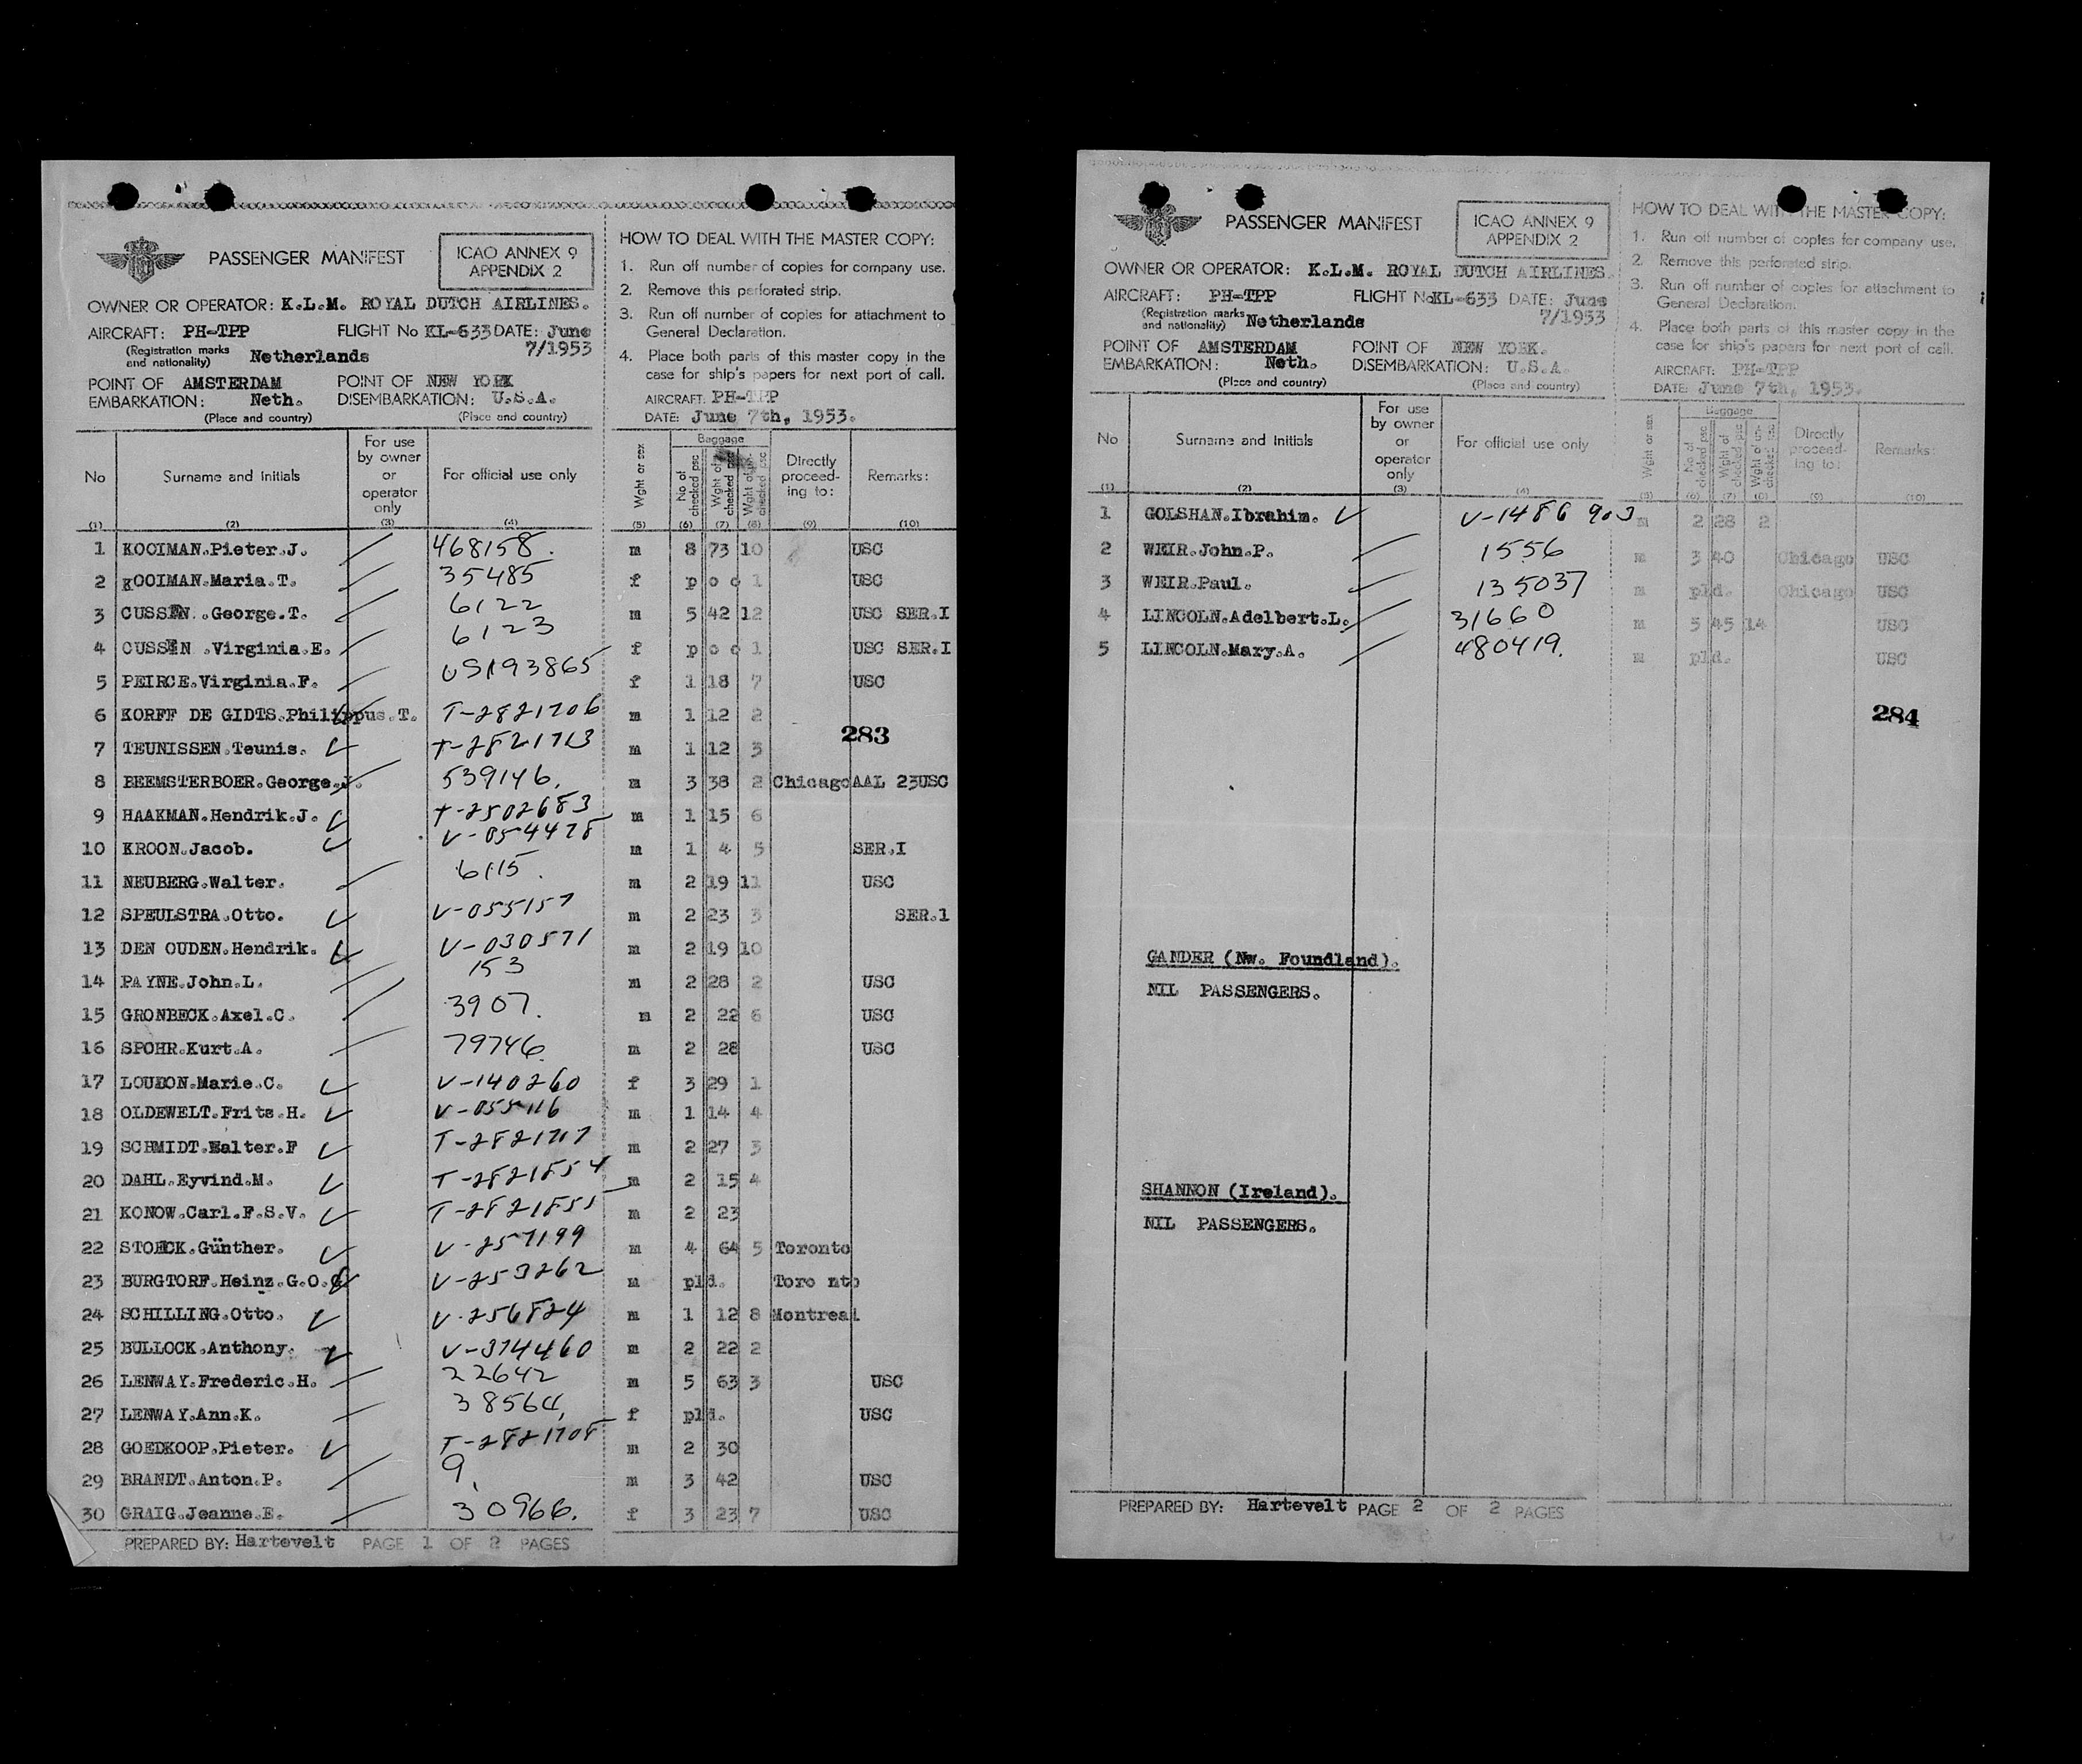 PASSENGER MANIFEST
ICAO ANNEX 9
APPENDIX 2
OWNER OR OPERATOR: K.L.M. ROYAL DUTCH AIRLINES.
AIRCRAFT: PH-TPP FLIGHT No KL-633 DATE: June
7/1953
(Registration marks
and nationality) Netherlands
POINT OF AMSTERDAM POINT OF NEW YORK
EMBARKATION: Neth. DISEMBARKATION: U.S.A.
(Place and country) (Place and country)
HOW TO DEAL WITH THE MASTER COPY:
1. Run off number of copies for company use.
2. Remove this perforated strip.
3. Run off number of copies for attachment to
General Declaration.
4. Place both parts of this master copy in the
case for ship's papers for next port of call.
AIRCRAFT: PH-TPP
DATE: June 7th, 1953.
No Surname and Initials For use by owner or operator only For official use only Wght or sex Baggage No of checked psc Wght of checked psc Wght of un-checked psc Directly proceed-ing to: Remarks:
(1) (2) (3) (4) (5) (6) (7) (8) (9) (10)
1 KOOIMAN.Pieter.J. 468158. m 8 73 10 USC
2 KOOIMAN.Maria.T. 35485 f p o o 1 USC
3 CUSSEN..George.T. 6122 m 5 42 12 USC SER.I
4 CUSSEN .Virginia.E. 6123 f p o o 1 USC SER.I
5 PEIRCE.Virginia.F. US193865 f 1 18 7 USC
6 KORFF DE GIDTS.Philippus.T. T-2821706 m 1 12 2
283
7 TEUNISSEN.Teunis. T-2821713 m 1 12 3
8 BEEMSTERBOER.George.J. 539146. m 3 38 2 Chicago AAL 23USC
9 HAAKMAN.Hendrik.J. T-2502683 m 1 15 6
10 KROON.Jacob. V-054478 m 1 4 5 SER.I
11 NEUBERG.Walter. 6115. m 2 19 11 USC
12 SPEULSTRA.Otto. V-055157 m 2 23 3 SER.1
13 DEN OUDEN.Hendrik. V-030571 m 2 19 10
14 PAYNE.John.L. 153 m 2 28 2 USC
15 GRONBECK.Axel.C. 3907. m 2 22 6 USC
16 SPOHR.Kurt.A. 79746. m 2 28 USC
17 LOUDON.Marie.C. V-140260 f 3 29 1
18 OLDEWELT.Frits.H. V-055116 m 1 14 4
19 SCHMIDT.Walter.F T-2821717 m 2 27 3
20 DAHL.Eyvind.M. T-2821854 m 2 15 4
21 KONOW.Carl.F.S.V. T-2821855 m 2 23
22 STOECK.Günther. V-257199 m 4 64 5 Toronto
23 BURGTORF.Heinz.G.O. V-253262 m pld. Toro nto
24 SCHILLING.Otto. V-256824 m 1 12 8 Montreal
25 BULLOCK.Anthony. V-374460 m 2 22 2
26 LENWAY.Frederic.H. 22642 m 5 63 3 USC
27 LENWAY.Ann.K. 38564. f pld. USC
28 GOEDKOOP.Pieter. T-2821708 m 2 30
29 BRANDT.Anton.P. 9. m 3 42 USC
30 GRAIG.Jeanne.E. 30966. f 3 23 7 USC
PREPARED BY: Hartevelt PAGE 1 OF 2 PAGES
PASSENGER MANIFEST
ICAO ANNEX 9
APPENDIX 2
OWNER OR OPERATOR: K.L.M. ROYAL DUTCH AIRLINES.
AIRCRAFT: PH-TPP FLIGHT No KL-633 DATE: June
7/1953
(Registration marks
and nationality) Netherlands
POINT OF AMSTERDAM POINT OF NEW YORK.
EMBARKATION: Neth. DISEMBARKATION: U.S.A.
(Place and country) (Place and country)
HOW TO DEAL WITH THE MASTER COPY:
1. Run off number of copies for company use.
2. Remove this perforated strip.
3. Run off number of copies for attachment to
General Declaration.
4. Place both parts of this master copy in the
case for ship's papers for next port of call.
AIRCRAFT: PH-TPP
DATE: June 7th, 1953.
No Surname and Initials For use by owner or operator only For official use only Wght or sex Baggage No of checked psc Wght of checked psc Wght of un-checked psc Directly proceed-ing to: Remarks:
(1) (2) (3) (4) (5) (6) (7) (8) (9) (10)
1 GOLSHAN.Ibrahim. V-1486 903 m 2 28 2
2 WEIR.John.P. 1556 m 3 40 Chicago USC
3 WEIR.Paul. 135037 m pld. Chicago USC
4 LINCOLN.Adelbert.L. 31660 m 5 45 14 USC
5 LINCOLN.Mary.A. 480419. m pld. USC
284
GANDER (Nw. Foundland).
NIL PASSENGERS.
SHANNON (Ireland).
NIL PASSENGERS.
PREPARED BY: Hartevelt PAGE 2 OF 2 PAGES